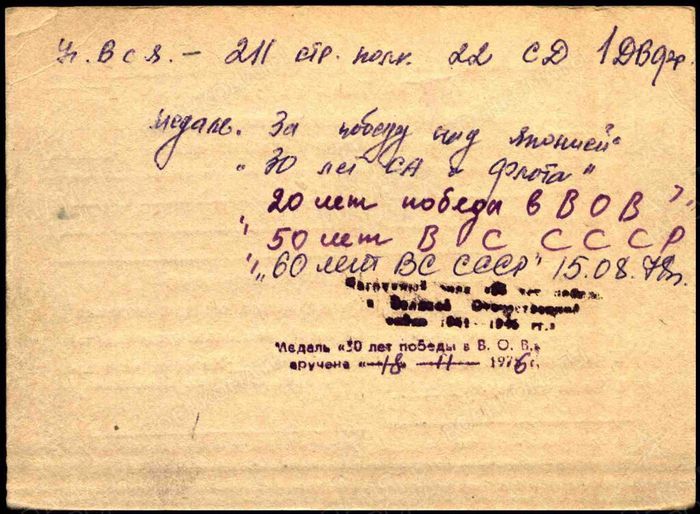 Уч. В с Я. – 211 стр. полк. 22 СД 1 ДВфр.
медаль. За победу над Японией"
" 30 лет СА и Флота"
20 лет победа в ВОВ"
" 50 лет ВС СССР
" „60 лет ВС СССР" 15.08.78г.
Нагрудный знак «25 лет победы
в Великой Отечественной
войне 1941–1945 гг.»
Медаль «30 лет победы в В. О. В.»
вручена «18» 11 1976г.